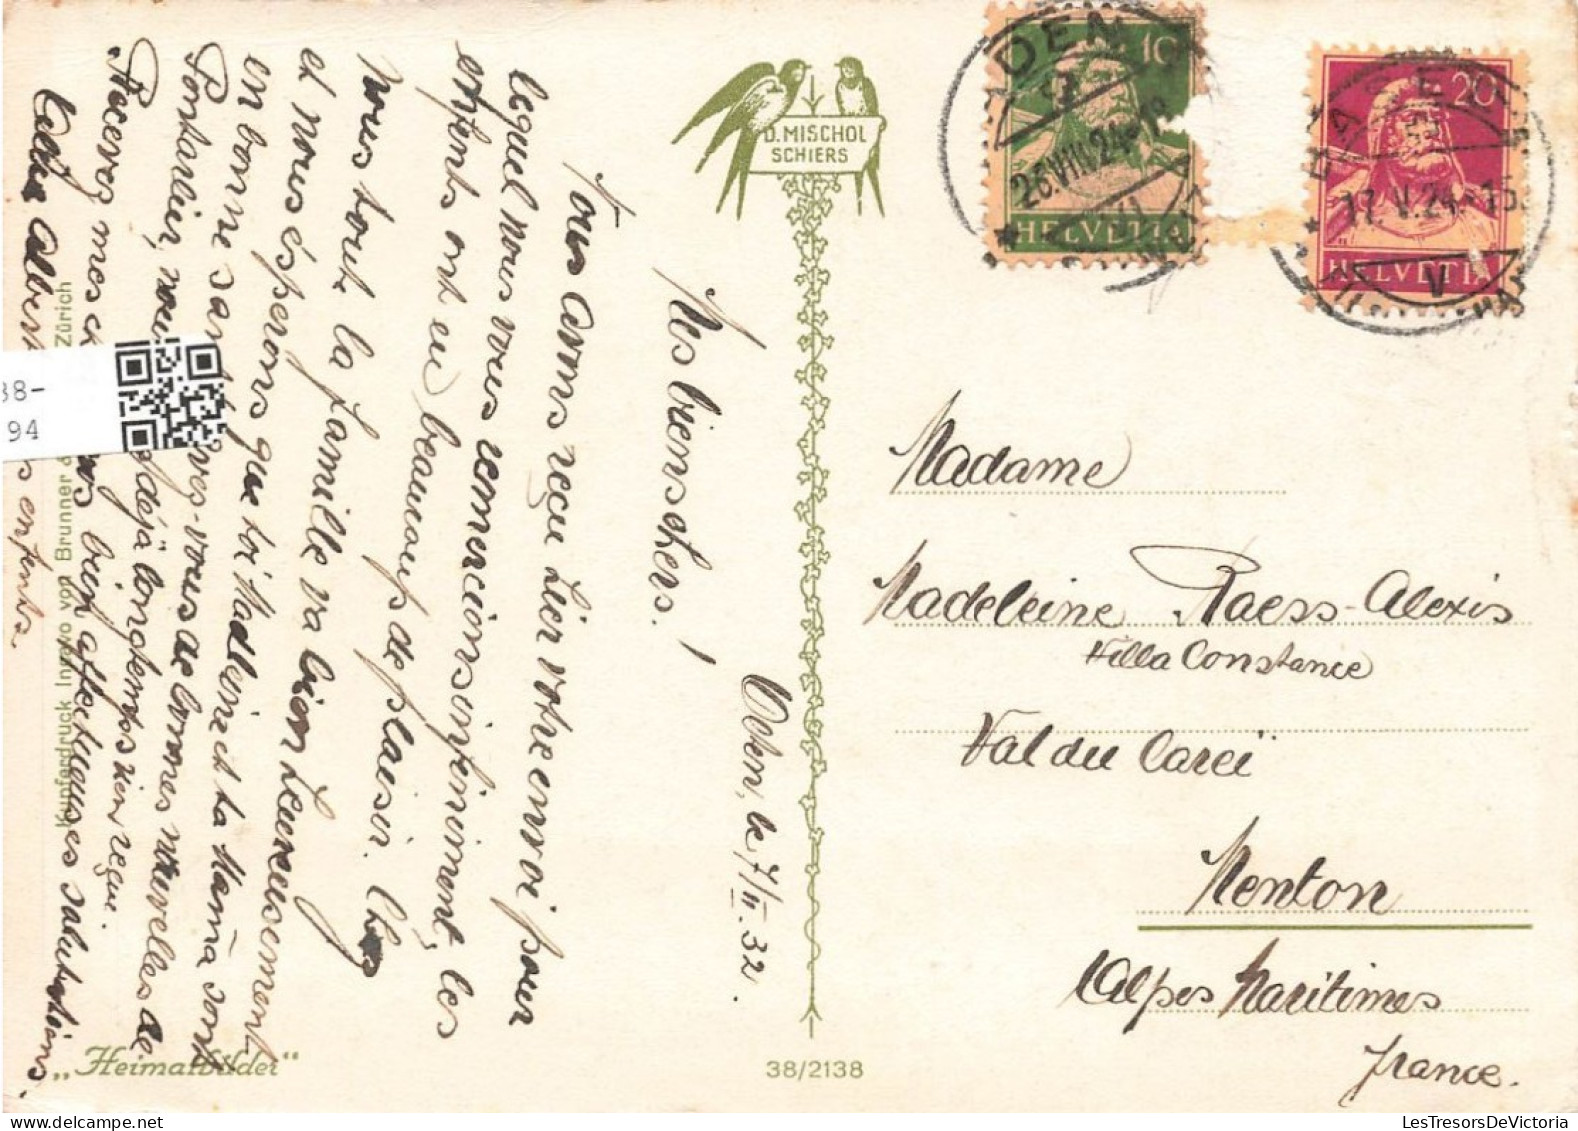 Ochn, le 7/II.32.
Mes bien chers!
Nous avons reçu hier votre envoi pour
lequel nous vous remercions infiniment, les
enfants ont eu beaucoup de plaisir. Chez
nous toute la famille va bien heureusement
et nous espérons que toi Madleine et ta Mama sont
en bonne santé. Avez-vous de bonnes nouvelles de
Pontarlier, nous déjà longtemps rien reçu.
Recevez mes bien affectueuses salutations
enfants.
D. MISCHOL
SCHIERS
10
HELVETIA
26.VIII.24
20
BASEL
17.V.24-15
V
HELVETIA
Madame
Madeleine Raess-Alexis
Villa Constance
Val du Careï
Menton
Alpes Maritimes
France.
„Heimatbilder“
38/2138
Kupferdruck von Brunner & Zürich
38-
94
LesTresorsDeVictoria